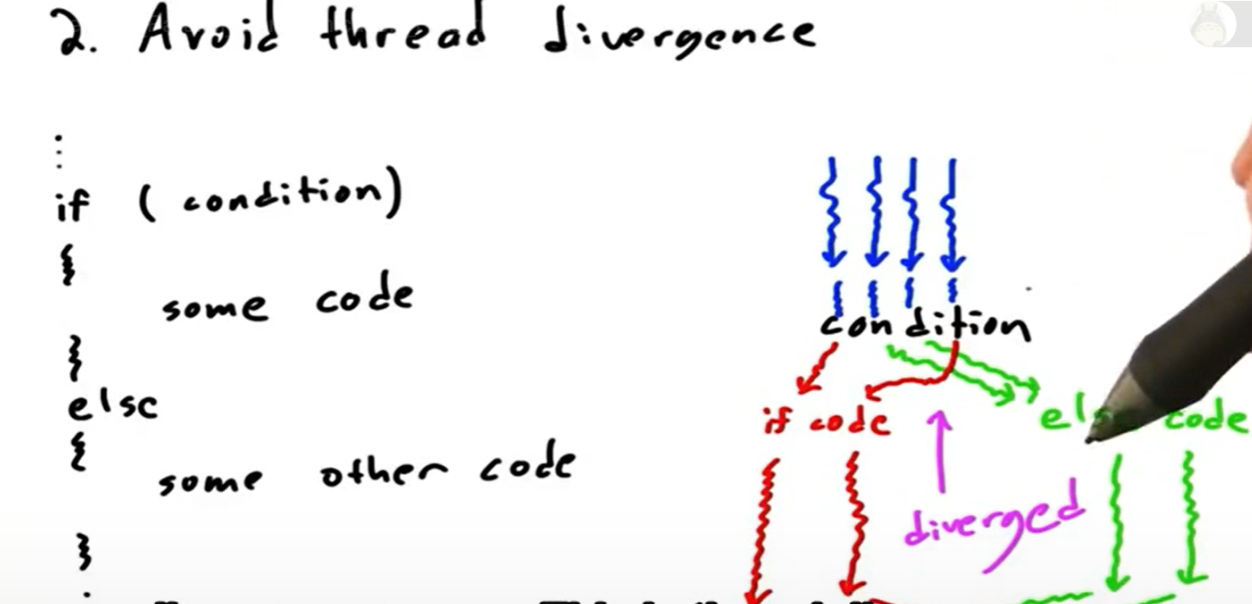 2. Avoid thread divergence
⋮
if ( condition)
{
some code
}
else
{
some other code
}
condition
if code
else code
diverged